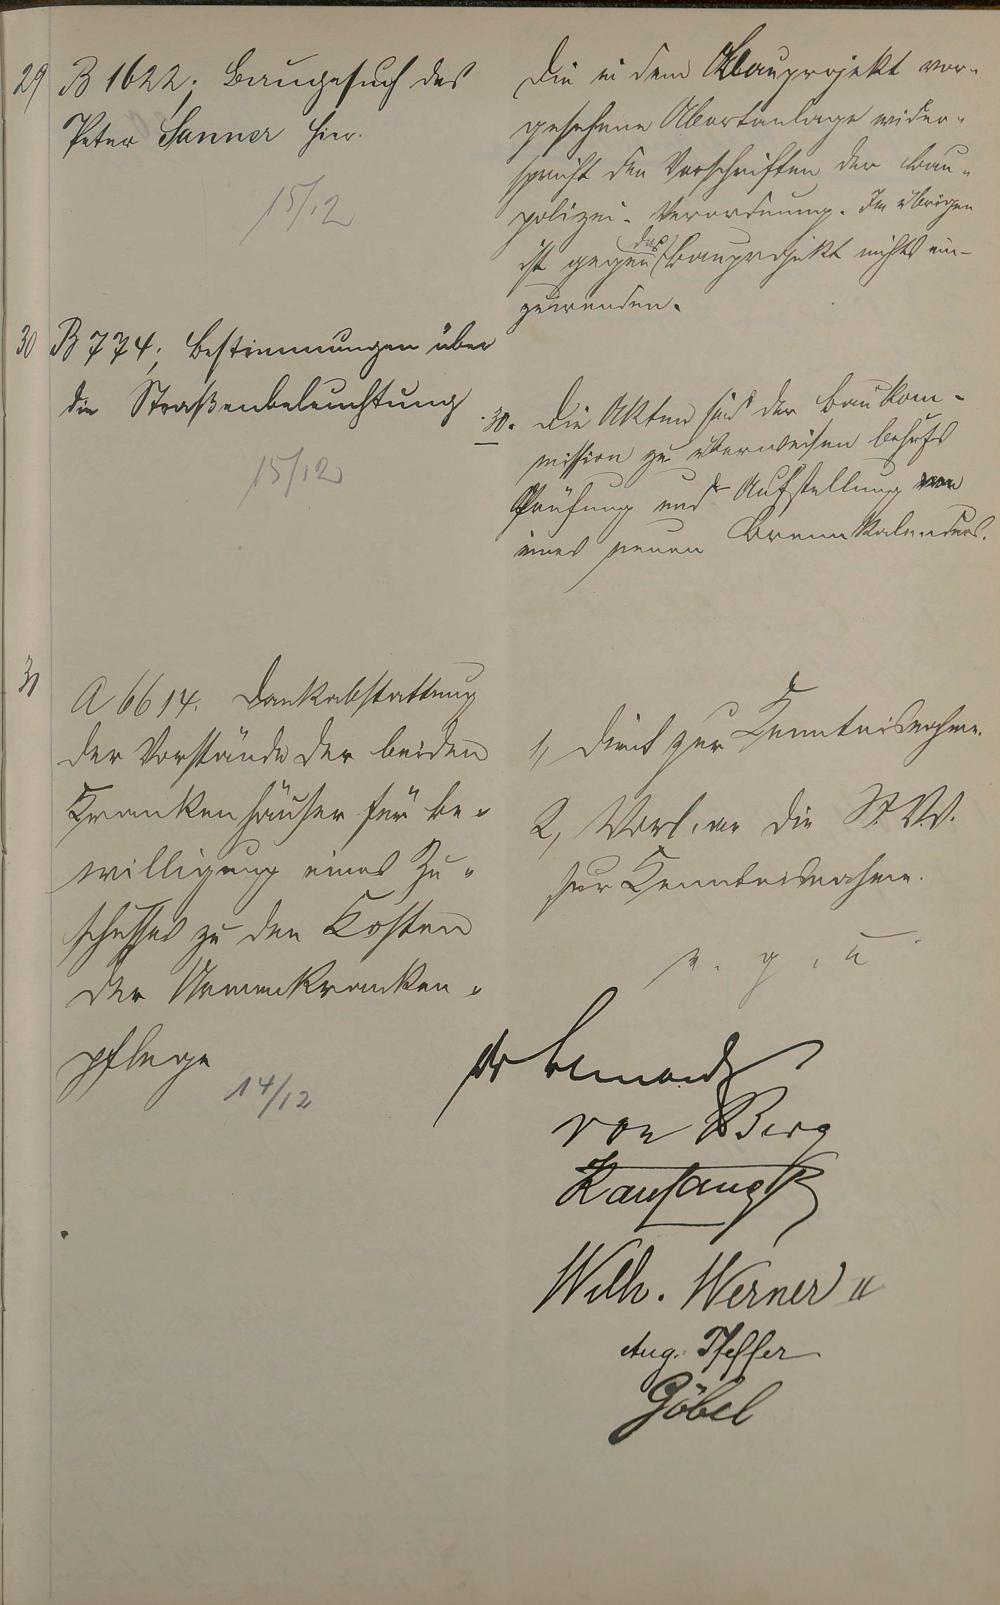 29 B 1622; Baugesuch des
Peter Sanner hier.
15/12
Die in dem Bauprojekt vor-
gesehene Abortanlage wider-
spricht den Vorschriften der Bau-
polizei-Verordnung. Im übrigen
ist gegen das Bauprojekt nichts ein-
zuwenden.
30 B 774; Bestimmungen über
die Straßenbeleuchtung
15/12
30. Die Akten sind der Baukom-
mission zu überweisen behufs
Prüfung und Aufstellung
eines neuen Brennkalenders.
31 A 6614. Dankabstattung
der Vorstände der beiden
Krankenhäuser für Be-
willigung eines Zu-
schusses zu den Kosten
der Armenkranken-
pflege
14/12
1, Dient zur Kenntnisnahme.
2, Vorl. an die St. V. V.
zur Kenntnisnahme.
v. g. u.
von Berg
Wilh. Werner II
Aug. Pfeffer
Göbel